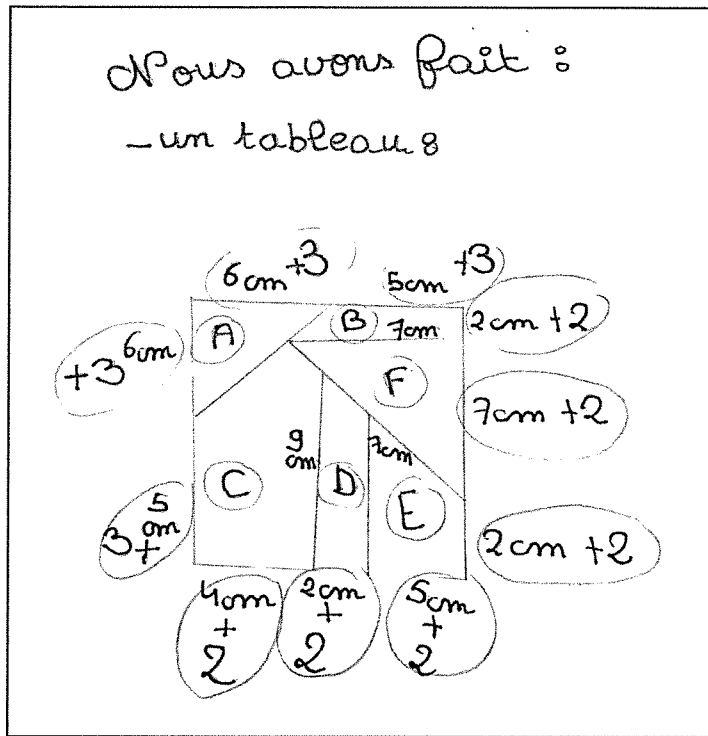 Nous avons fait :
- un tableau :
6cm +3
5cm +3
A
B
7cm
2cm + 2
+3 6cm
F
7cm + 2
9 cm
7cm
C
D
E
5 cm + 3
2cm + 2
4cm + 2
2cm + 2
5cm + 2